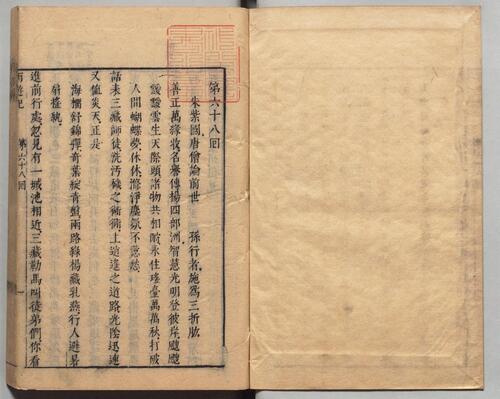 第六十八回
朱紫國唐僧論前世　孫行者施爲三折肱
善正萬緣收名譽傳揚四部洲智慧光明登彼岸颼颼
靉靉雲生天際頭諸物共相酧永住瑤臺萬萬秋打破
人間蝴蝶夢休休滌淨塵氛不惹愁
話表三藏師徒洗汚穢之衚衕上逍遙之道路光陰迅速
又値炎天正是
海榴舒錦彈荷葉綻靑盤兩路綠楊藏乳燕行人避暑
扇搖紈
進前行處忽見有一城池相近三藏勒馬叫徒弟們你看
西遊記　第六十八回　一